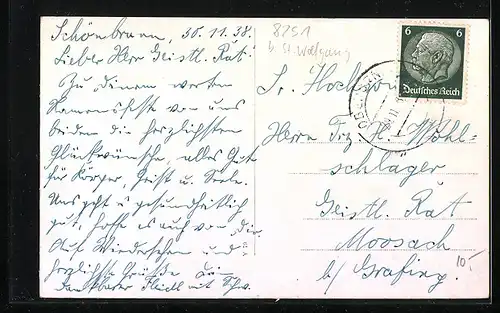 Schönbrunn, 30.11.38.
Lieber Herr Geistl. Rat!
Zu Deinem werten
Namensfeste von uns
beiden die herzlichsten
Glückwünsche, alles Gute
für Körper, Geist u. Seele.
Uns geht es gesundheitlich
gut, hoffe es auch von Dir.
Auf Wiedersehen und
herzlichste Grüße Dein
dankbarer mit Schw.
8251
b. St. Wolfgang
6 6
Deutsches Reich
Sr. Hochw
Herrn Frz. X. Wohl-
schläger
Geistl. Rat
Moosach
b/ Grafing.
10.-